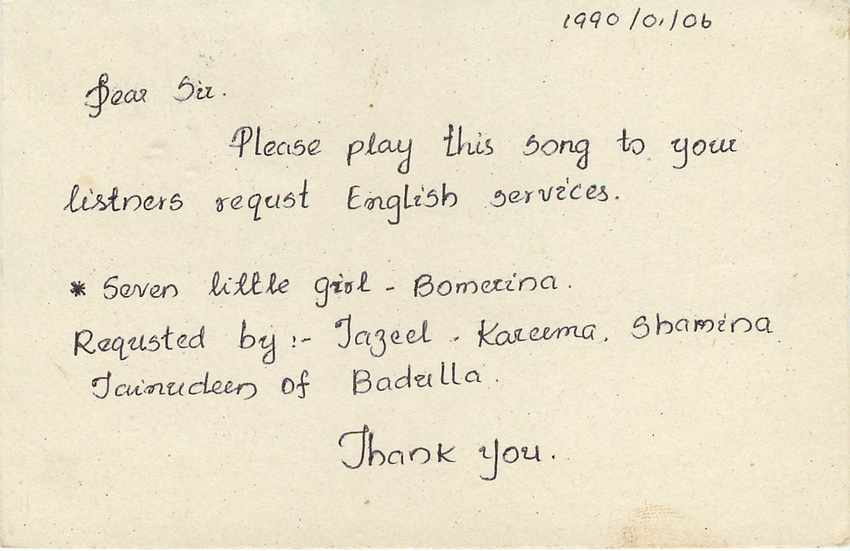 1990/01/06
Dear Sir.
Please play this song to your
listners requst English services.
* Seven little girl - Bomerina.
Requsted by :- Jazeel . Kareema. Shamina
Jainudeen of Badulla.
Thank you.